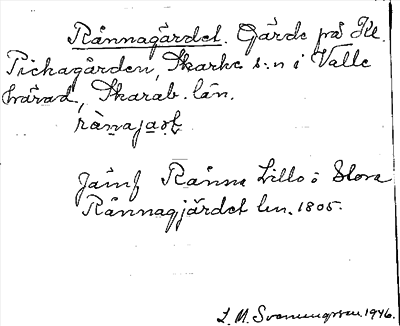 Rånnagärdet. Gärde på Kl.
Pickagården, Skarke s:n i Valle
härad, Skarab. län.
Jämf Rånna Lillo o Stora
Rånnagjärdet lm. 1805.
L. M. Svenungsson 1946.